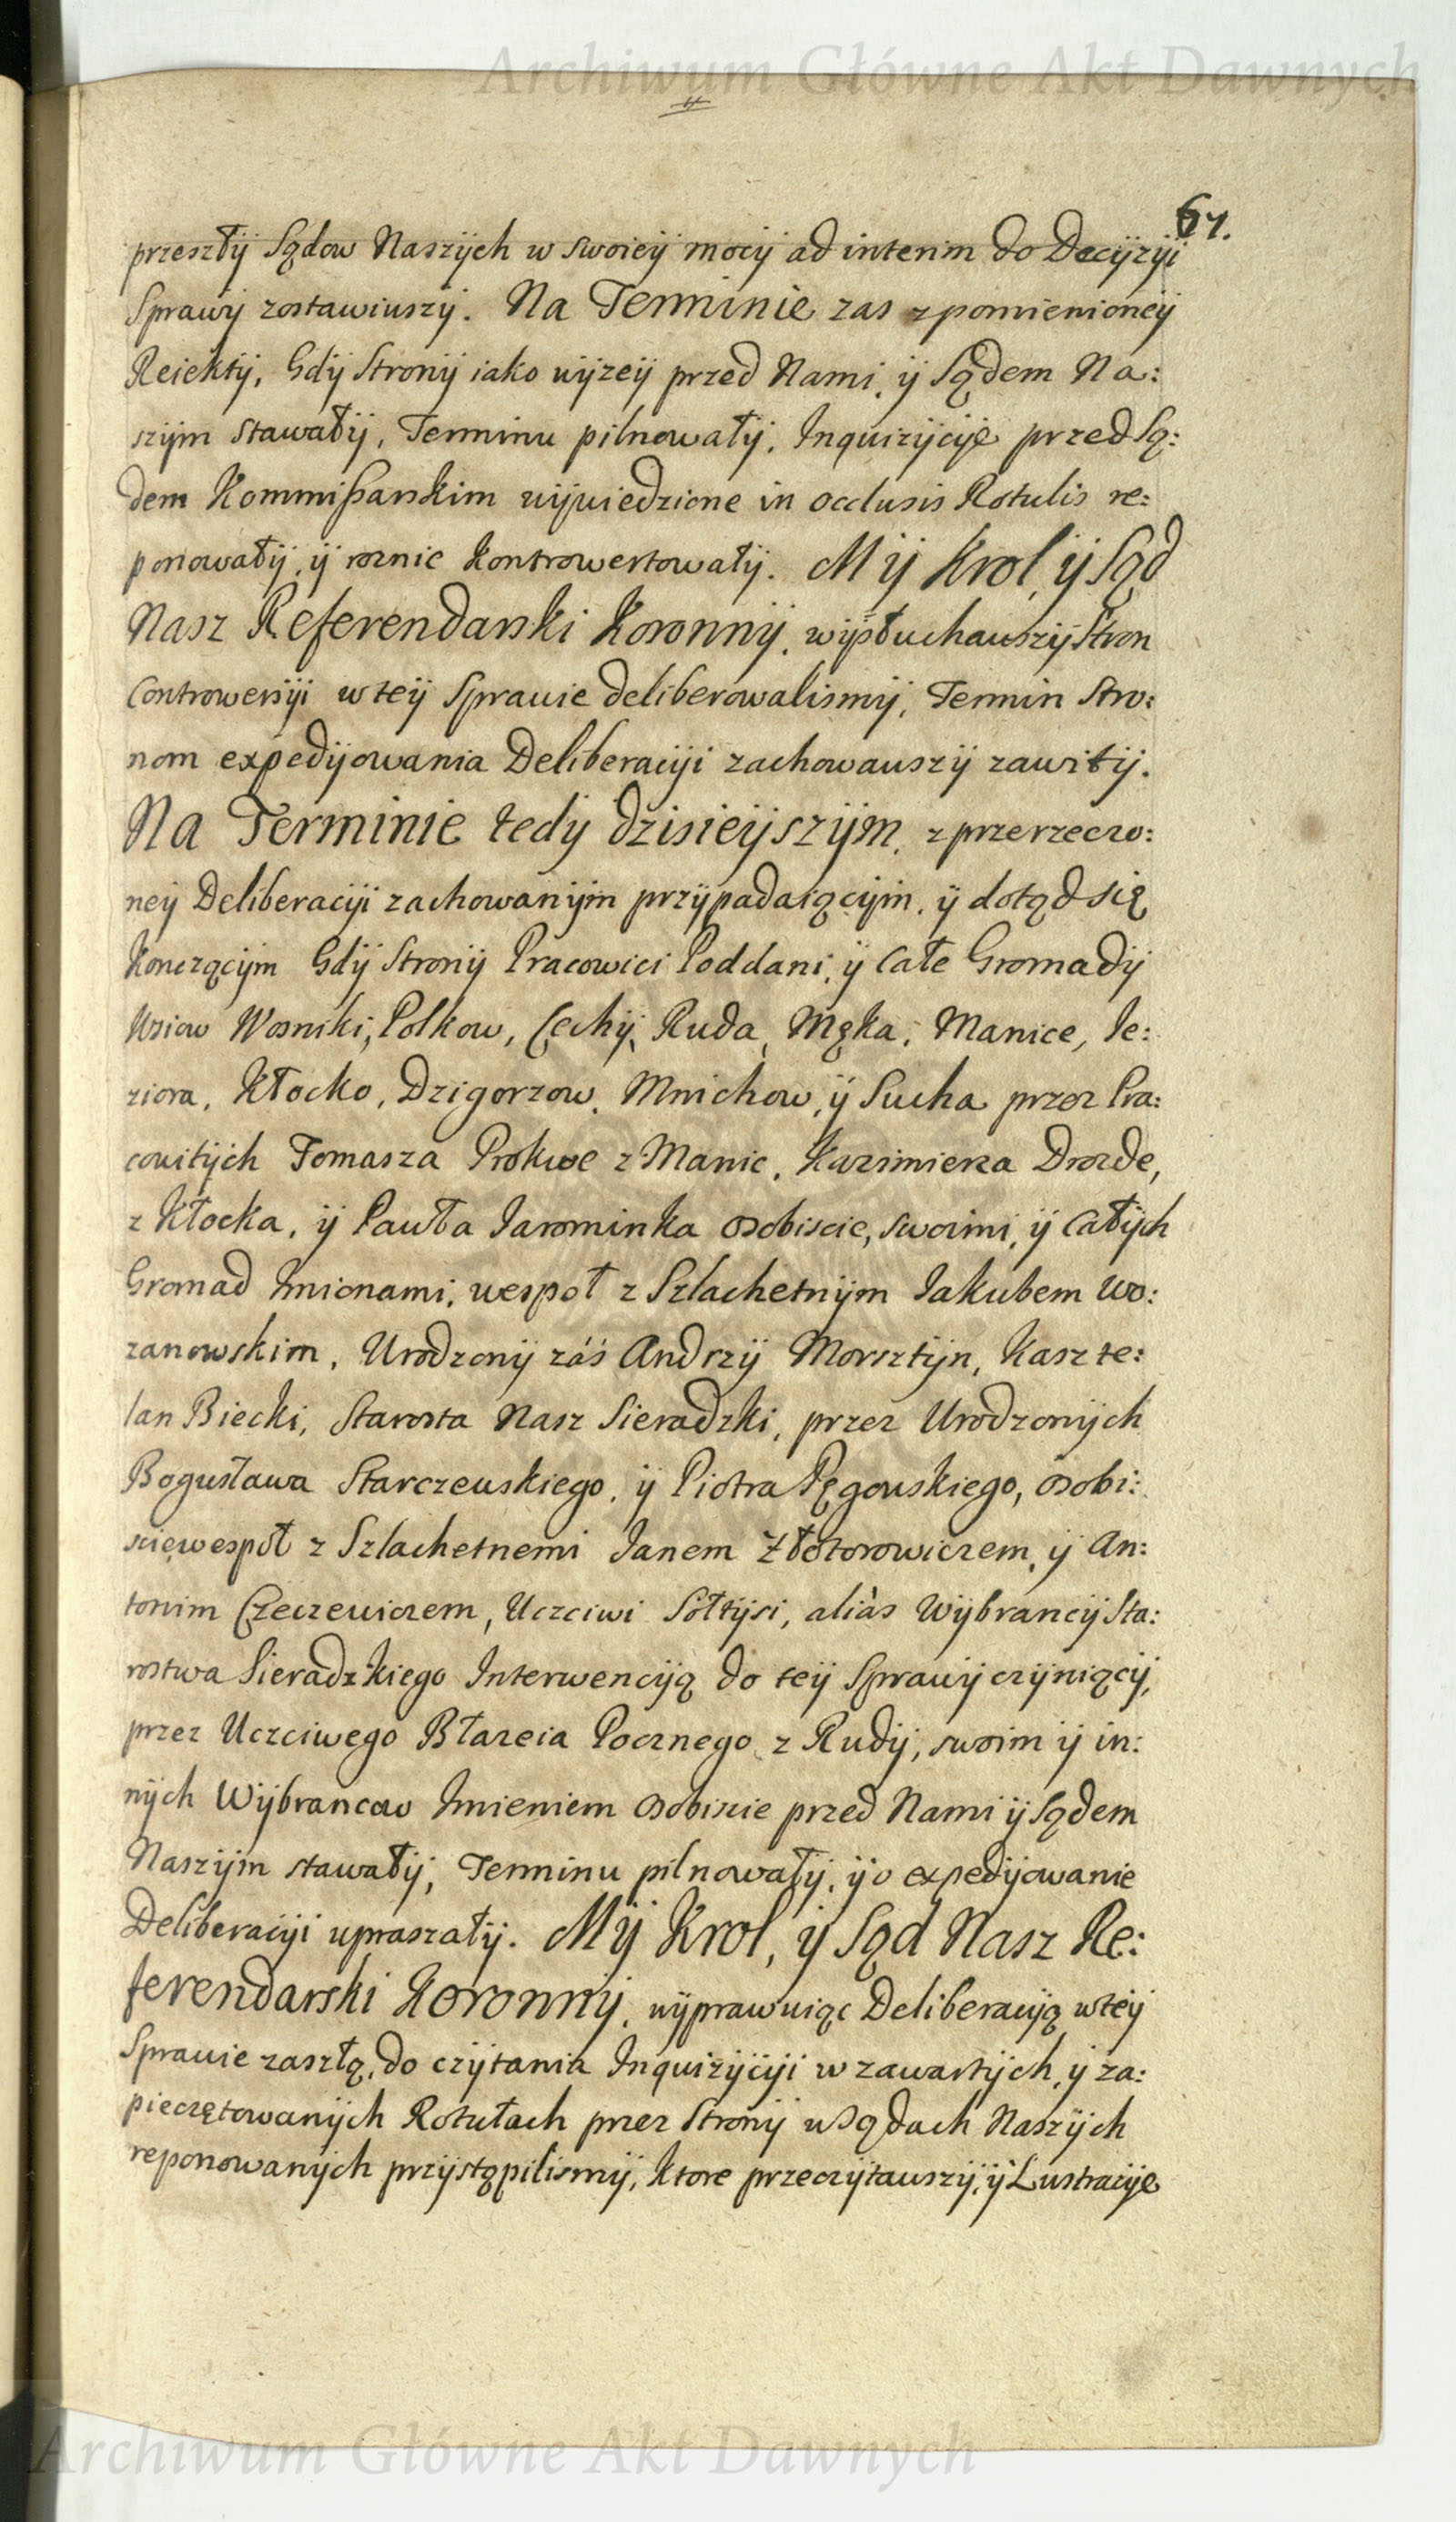 Archiwum Główne Akt Dawnych
67.
przeszłÿ Sądow Naszÿch w swoieÿ mocÿ ad interim do Decÿzÿi
Sprawÿ zostawiwszÿ. Na Terminie zas z pomienioneÿ
Reiektÿ, Gdÿ Stronÿ iako wÿzeÿ przed Nami, ÿ Sądem Na:
szÿm stawałÿ, Terminu pilnowałÿ, Inquizÿcÿe przed Są:
dem Kommißarskim wÿwiedzione in occlusis Rotulis re:
ponowałÿ, ÿ roznie kontrowertowałÿ. Mÿ Krol, ÿ Sąd
Nasz Referendarski Koronnÿ, wÿsłuchawszÿ Stron
Controwersÿi w teÿ Sprawie deliberowalismÿ, Termin Stro:
nom expedÿowania Deliberacÿi zachowawszÿ zawitÿ.
Na Terminie tedÿ dzisieÿszÿm, z przerzeczo:
neÿ Deliberacÿi zachowanÿm przÿpadaiącÿm, ÿ dotąd się
Konczącÿm Gdÿ Stronÿ Pracowici Poddani, ÿ Całe Gromadÿ
Wsiow Wosniki, Polkow, Cechÿ, Ruda, Mąka, Manice, Ie:
ziora, Kłocko, Dzigorzow, Mnichow, ÿ Sucha przez Pra:
cowitÿch Tomasza Prokwe z Manic, Kazimierza Drozde,
z Kłocka, ÿ Pawła Iarominka osobiscie, swoimi, ÿ Całÿch
Gromad Imionami, wespoł z Szlachetnÿm Iakubem Wo:
zanowskim, Urodzonÿ záś Andrzÿ Morsztÿn, Kaszte:
lan Biecki, Starosta Nasz Sieradzki, przez Urodzonÿch
Bogusława Starczewskiego, ÿ Piotra Pęgowskiego, osobi:
sciewespoł z Szlachetnemi Ianem Złotorowiczem, ÿ An:
tonim Czeczewiczem, Uczciwi Sołtÿsi, aliàs Wÿbrancÿ Sta:
rostwa Sieradzkiego Interwencÿą do teÿ Sprawÿ czÿniącÿ,
przez Uczciwego Błazeia Pocznego z Rudÿ, swoim ÿ in:
nÿch Wÿbrancow Imieniem osobiscie przed Nami ÿ Sądem
Naszÿm stawałÿ, Terminu pilnowałÿ, ÿ o expedÿowanie
Deliberacÿi upraszałÿ. Mÿ Krol, ÿ Sąd Nasz Re:
ferendarski Koronnÿ, wÿprawuiąc Deliberacÿą w teÿ
Sprawie zaszłą, do czÿtania Inquizÿcÿi w zawartÿch, ÿ za:
pieczętowanÿch Rotułach przez Stronÿ w Sądach Naszÿch
reponowanÿch przÿstąpilismÿ, Ktore przeczÿtawszÿ, ÿ Lustracÿe
Archiwum Główne Akt Dawnych